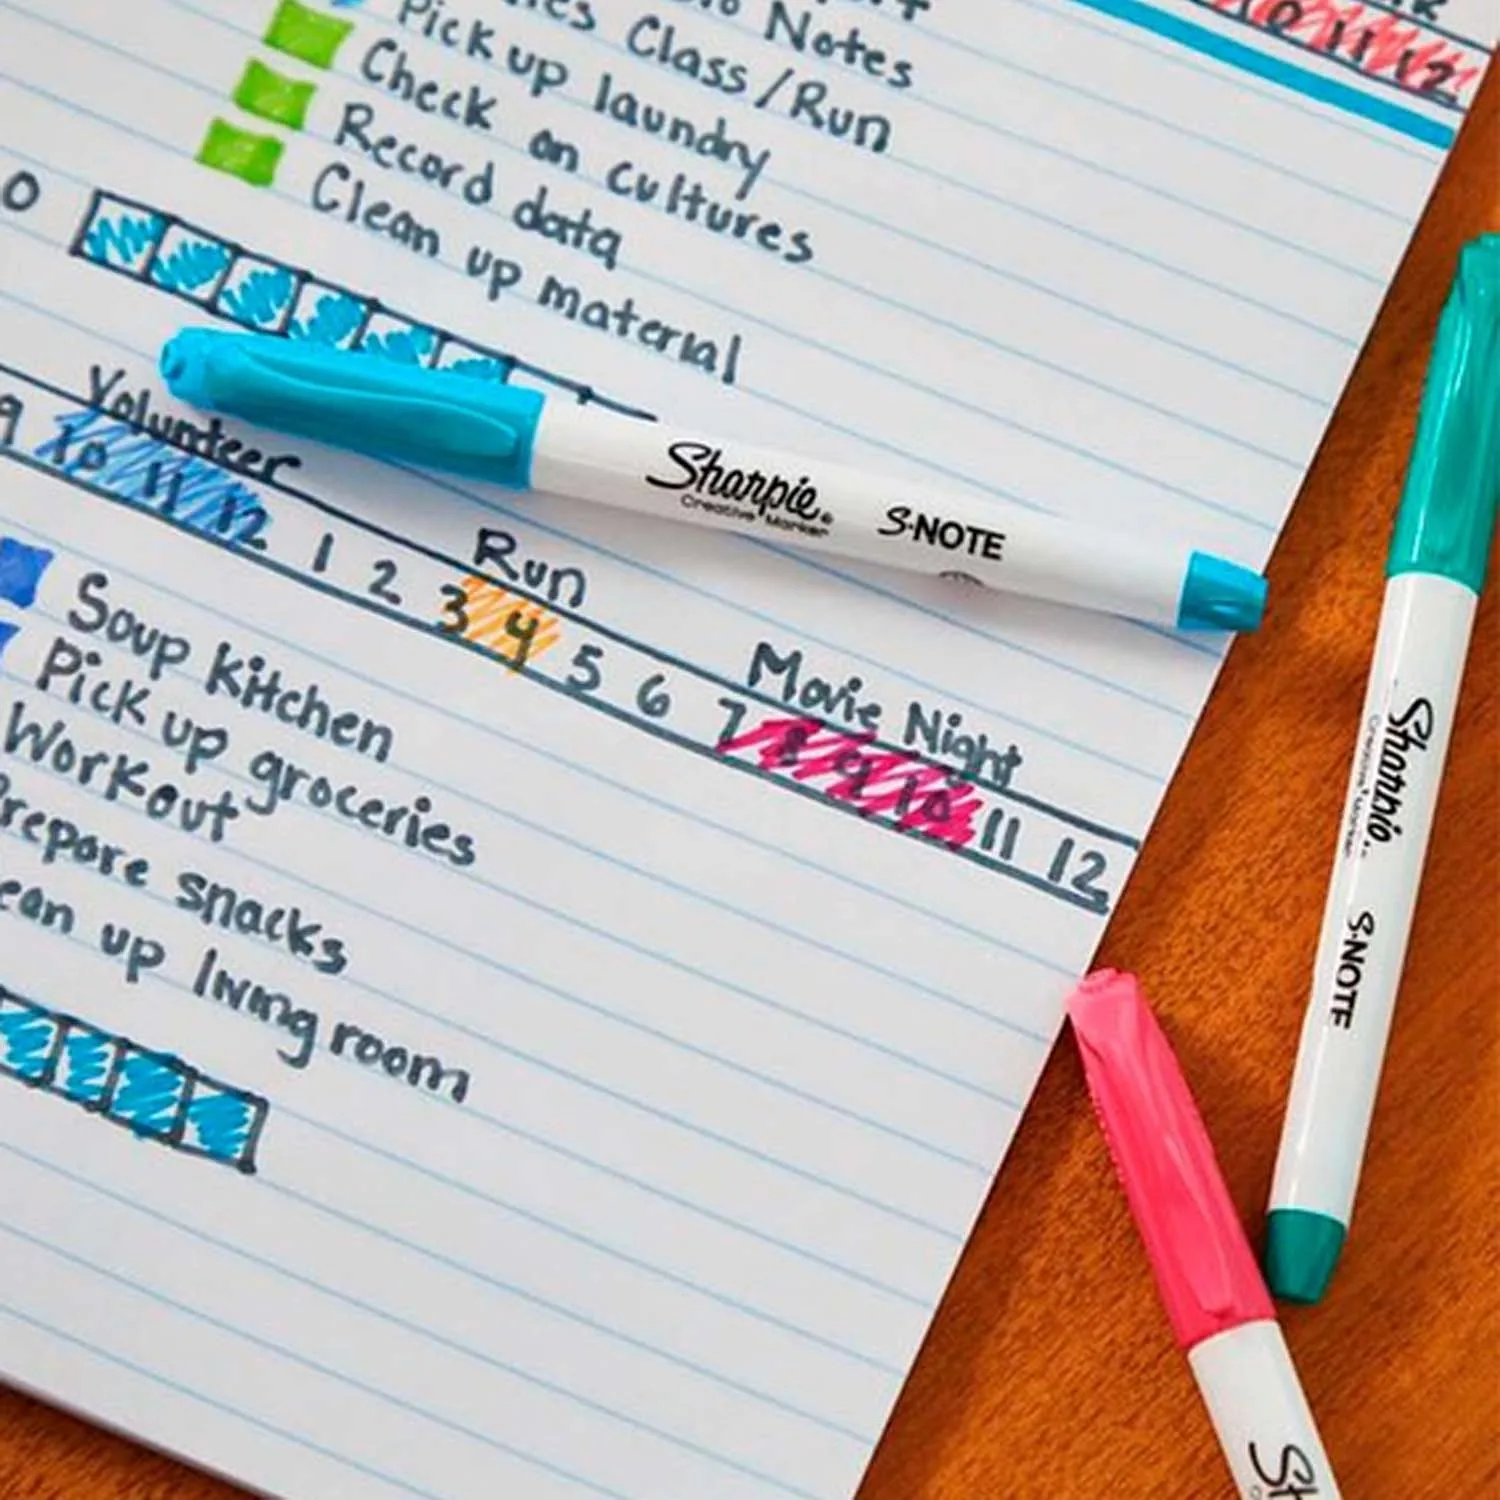 Notes
Class/Run
Pick up laundry
Check on cultures
Record data
Clean up material
0
10 11 12
Volunteer
Run
Movie Night
9 10 11 12 1 2 3 4 5 6 7 8 9 10 11 12
Soup kitchen
Pick up groceries
Workout
Prepare snacks
ean up living room
Sharpie®
Creative Marker
S·NOTE
Sharpie®
Creative Marker
S·NOTE
Sh